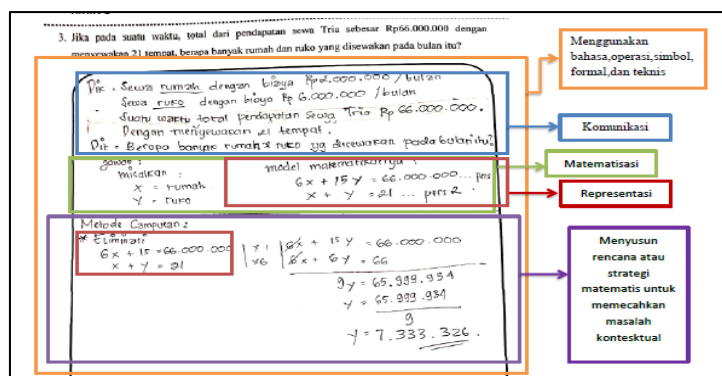 3. Jika pada suatu waktu, total dari pendapatan sewa Tria sebesar Rp66.000.000 dengan
menyewakan 21 tempat, berapa banyak rumah dan ruko yang disewakan pada bulan itu?
Dik : Sewa rumah dengan biaya Rp2.000.000 / bulan
Sewa ruko dengan biaya Rp 6.000.000 / bulan
Suatu waktu total pendapatan sewa Tria Rp 66.000.000.
Dengan menyewakan 21 tempat.
Dit = Berapa banyak rumah x ruko yg disewakan pada bulan itu?
jawab :
misalkan :
x = rumah
y = ruko
model matematikanya :
6x + 15 y = 66.000.000 ... pers
x + y = 21 ... pers 2
Metode Campuran :
* Eliminasi
6x + 15 = 66.000.000 | x 1 | 6x + 15 y = 66.000.000
x + y = 21 | x6 | 6x + 6y = 66
9y = 65.999.934
y = 65.999.934
9
y = 7.333.326.
Menggunakan
bahasa,operasi,simbol,
formal,dan teknis
Komunikasi
Matematisasi
Representasi
Menyusun
rencana atau
strategi
matematis untuk
memecahkan
masalah
kontesktual